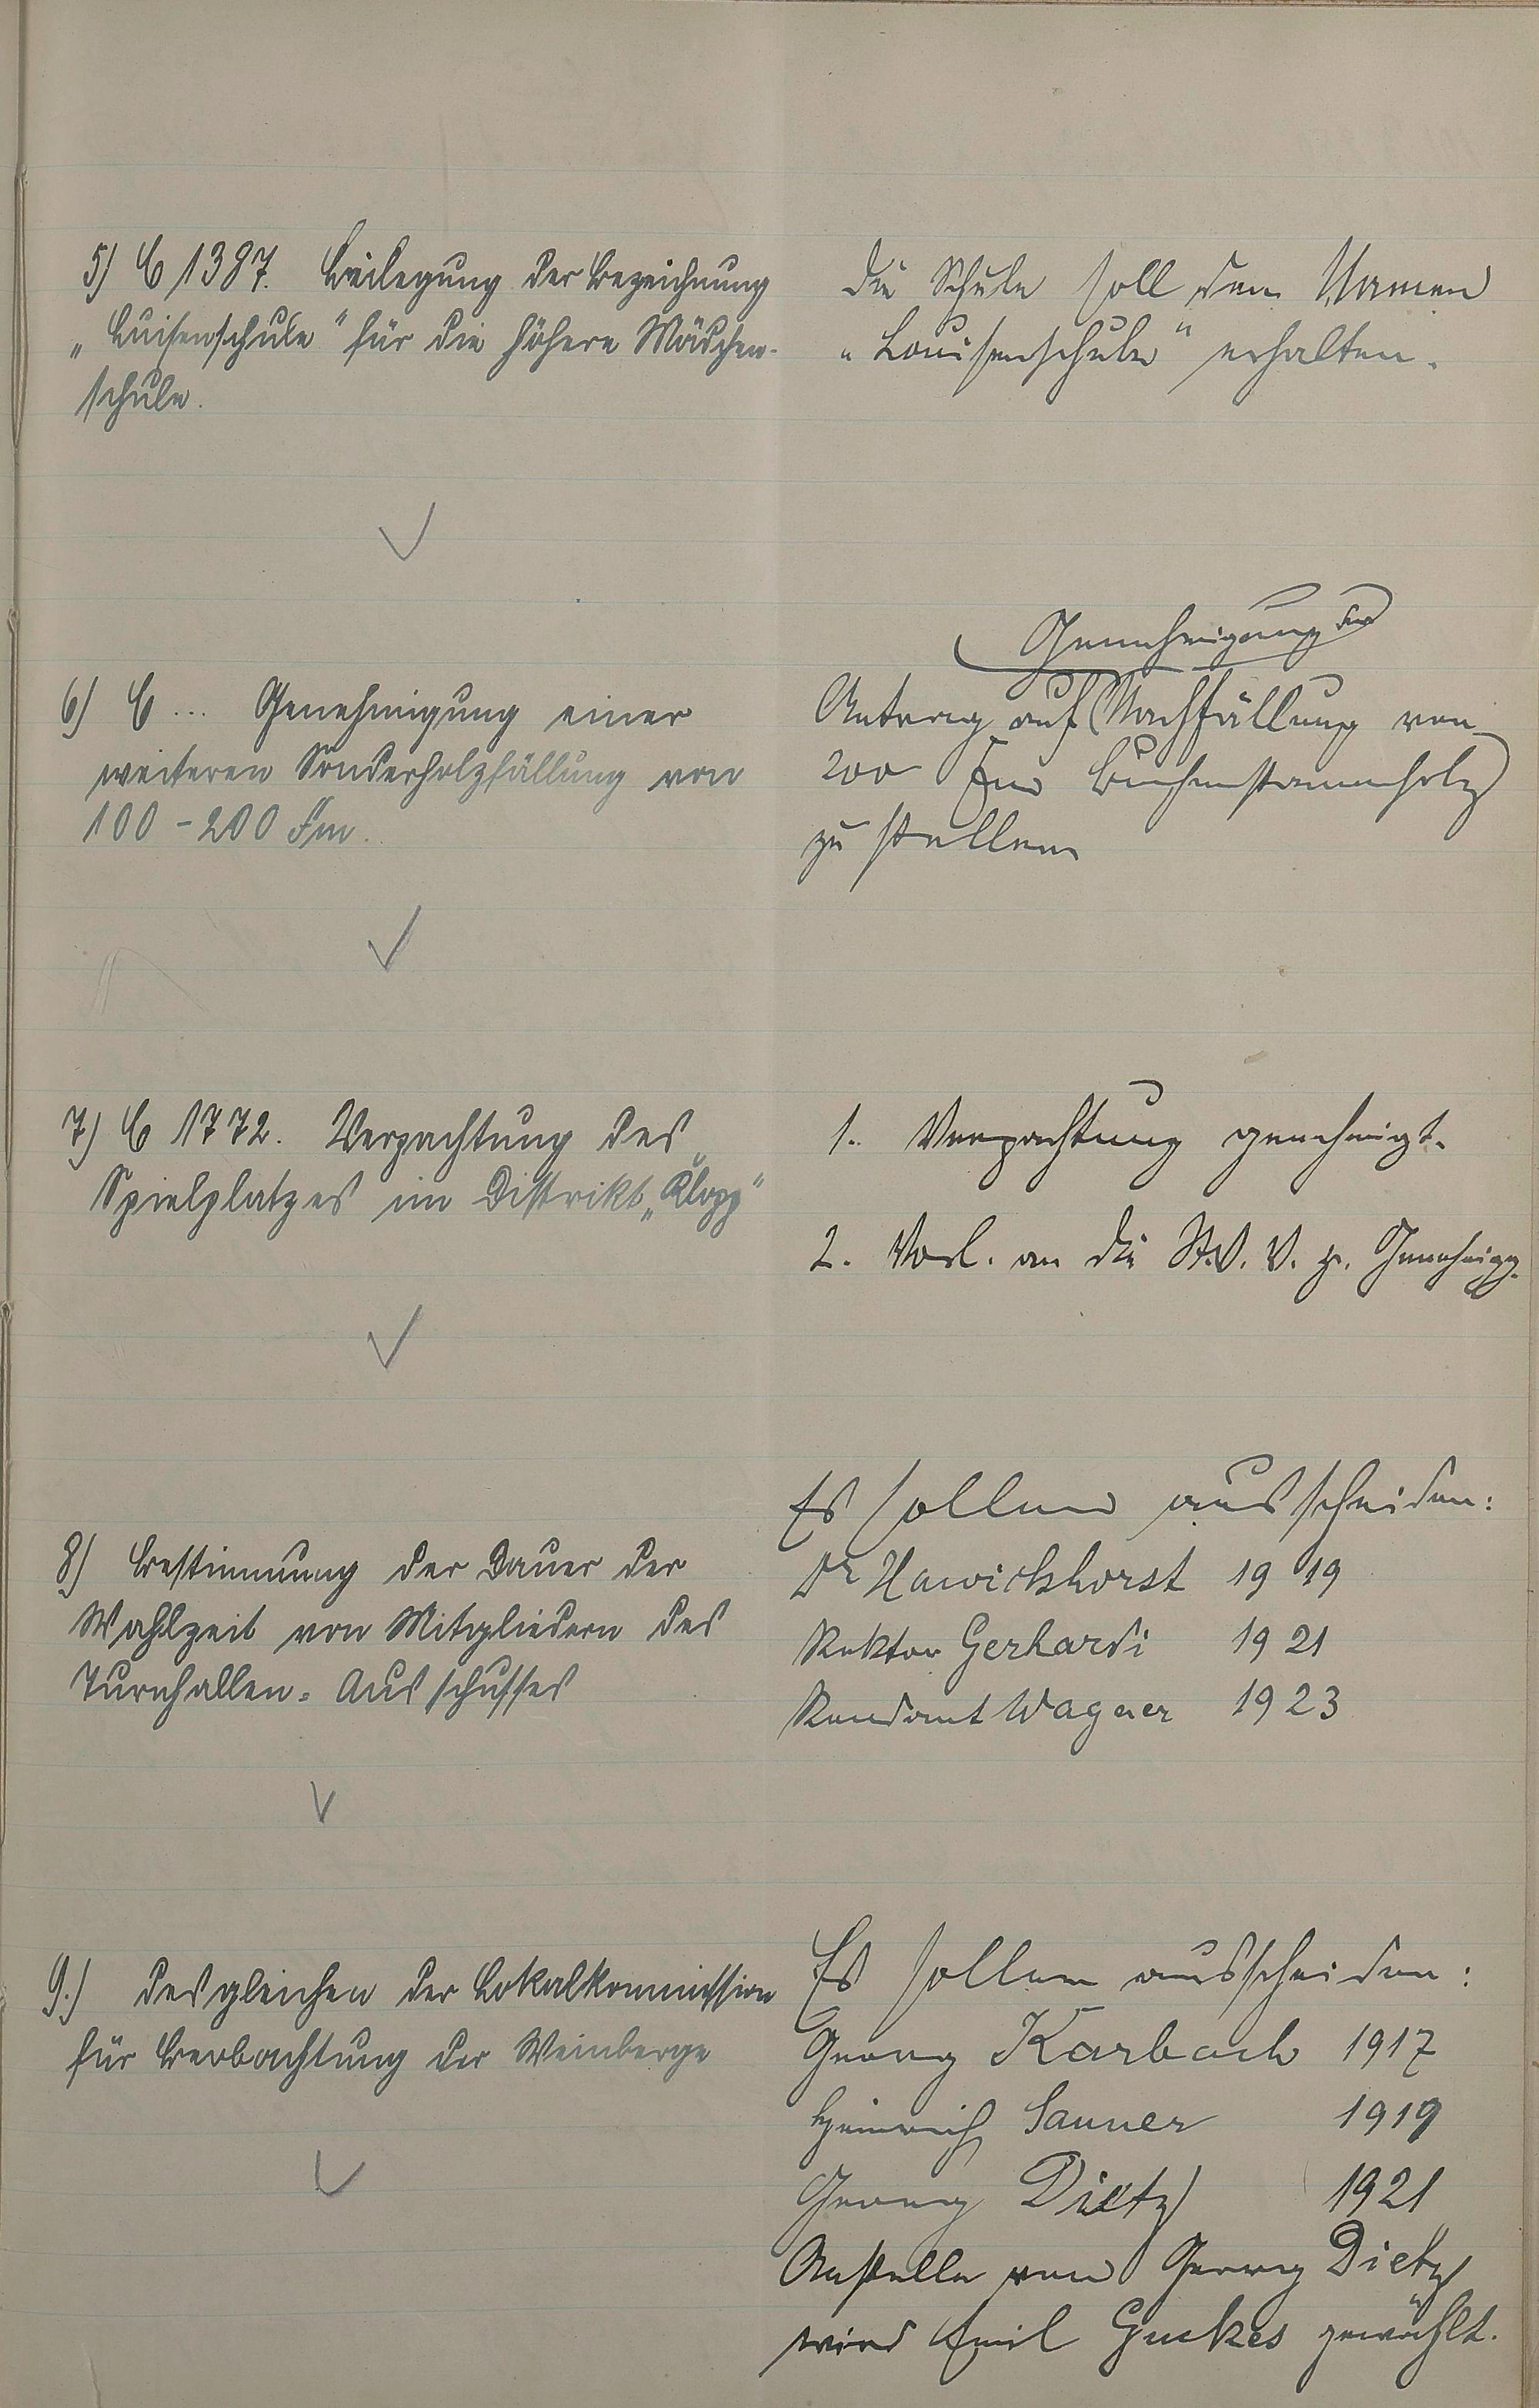 5) C 1387. Beilegung der Bezeichnung
„Luisenschule" für die höhere Mädchen-
schule.
Die Schule soll den Namen
„Louisenschule" erhalten.
6) C ... Genehmigung einer
weiteren Sonderholzfällung von
100 - 200 Fm.
Genehmigung der
Antrag auf Nachfällung von
200 Fm Buchenstammholz
zu stellen
7) C 1772. Verpachtung des
Spielplatzes im Distrikt „Klopp"
1. Verpachtung genehmigt.
2. Vorl. an die St.V.V. z. Genehmigg.
8) Bestimmung der Dauer der
Wahlzeit von Mitgliedern des
Turnhallen-Ausschusses
Es sollen ausscheiden:
Dr Hawickhorst 1919
Rektor Gerhardi 1921
Rendant Wagner 1923
9.) desgleichen der Lokalkommission
für Beobachtung der Weinberge
Es sollen ausscheiden:
Georg Karbach 1917
Heinrich Sauer 1919
Georg Dietz 1921
Anstelle von Georg Dietz
wird Emil Guckes gewählt.